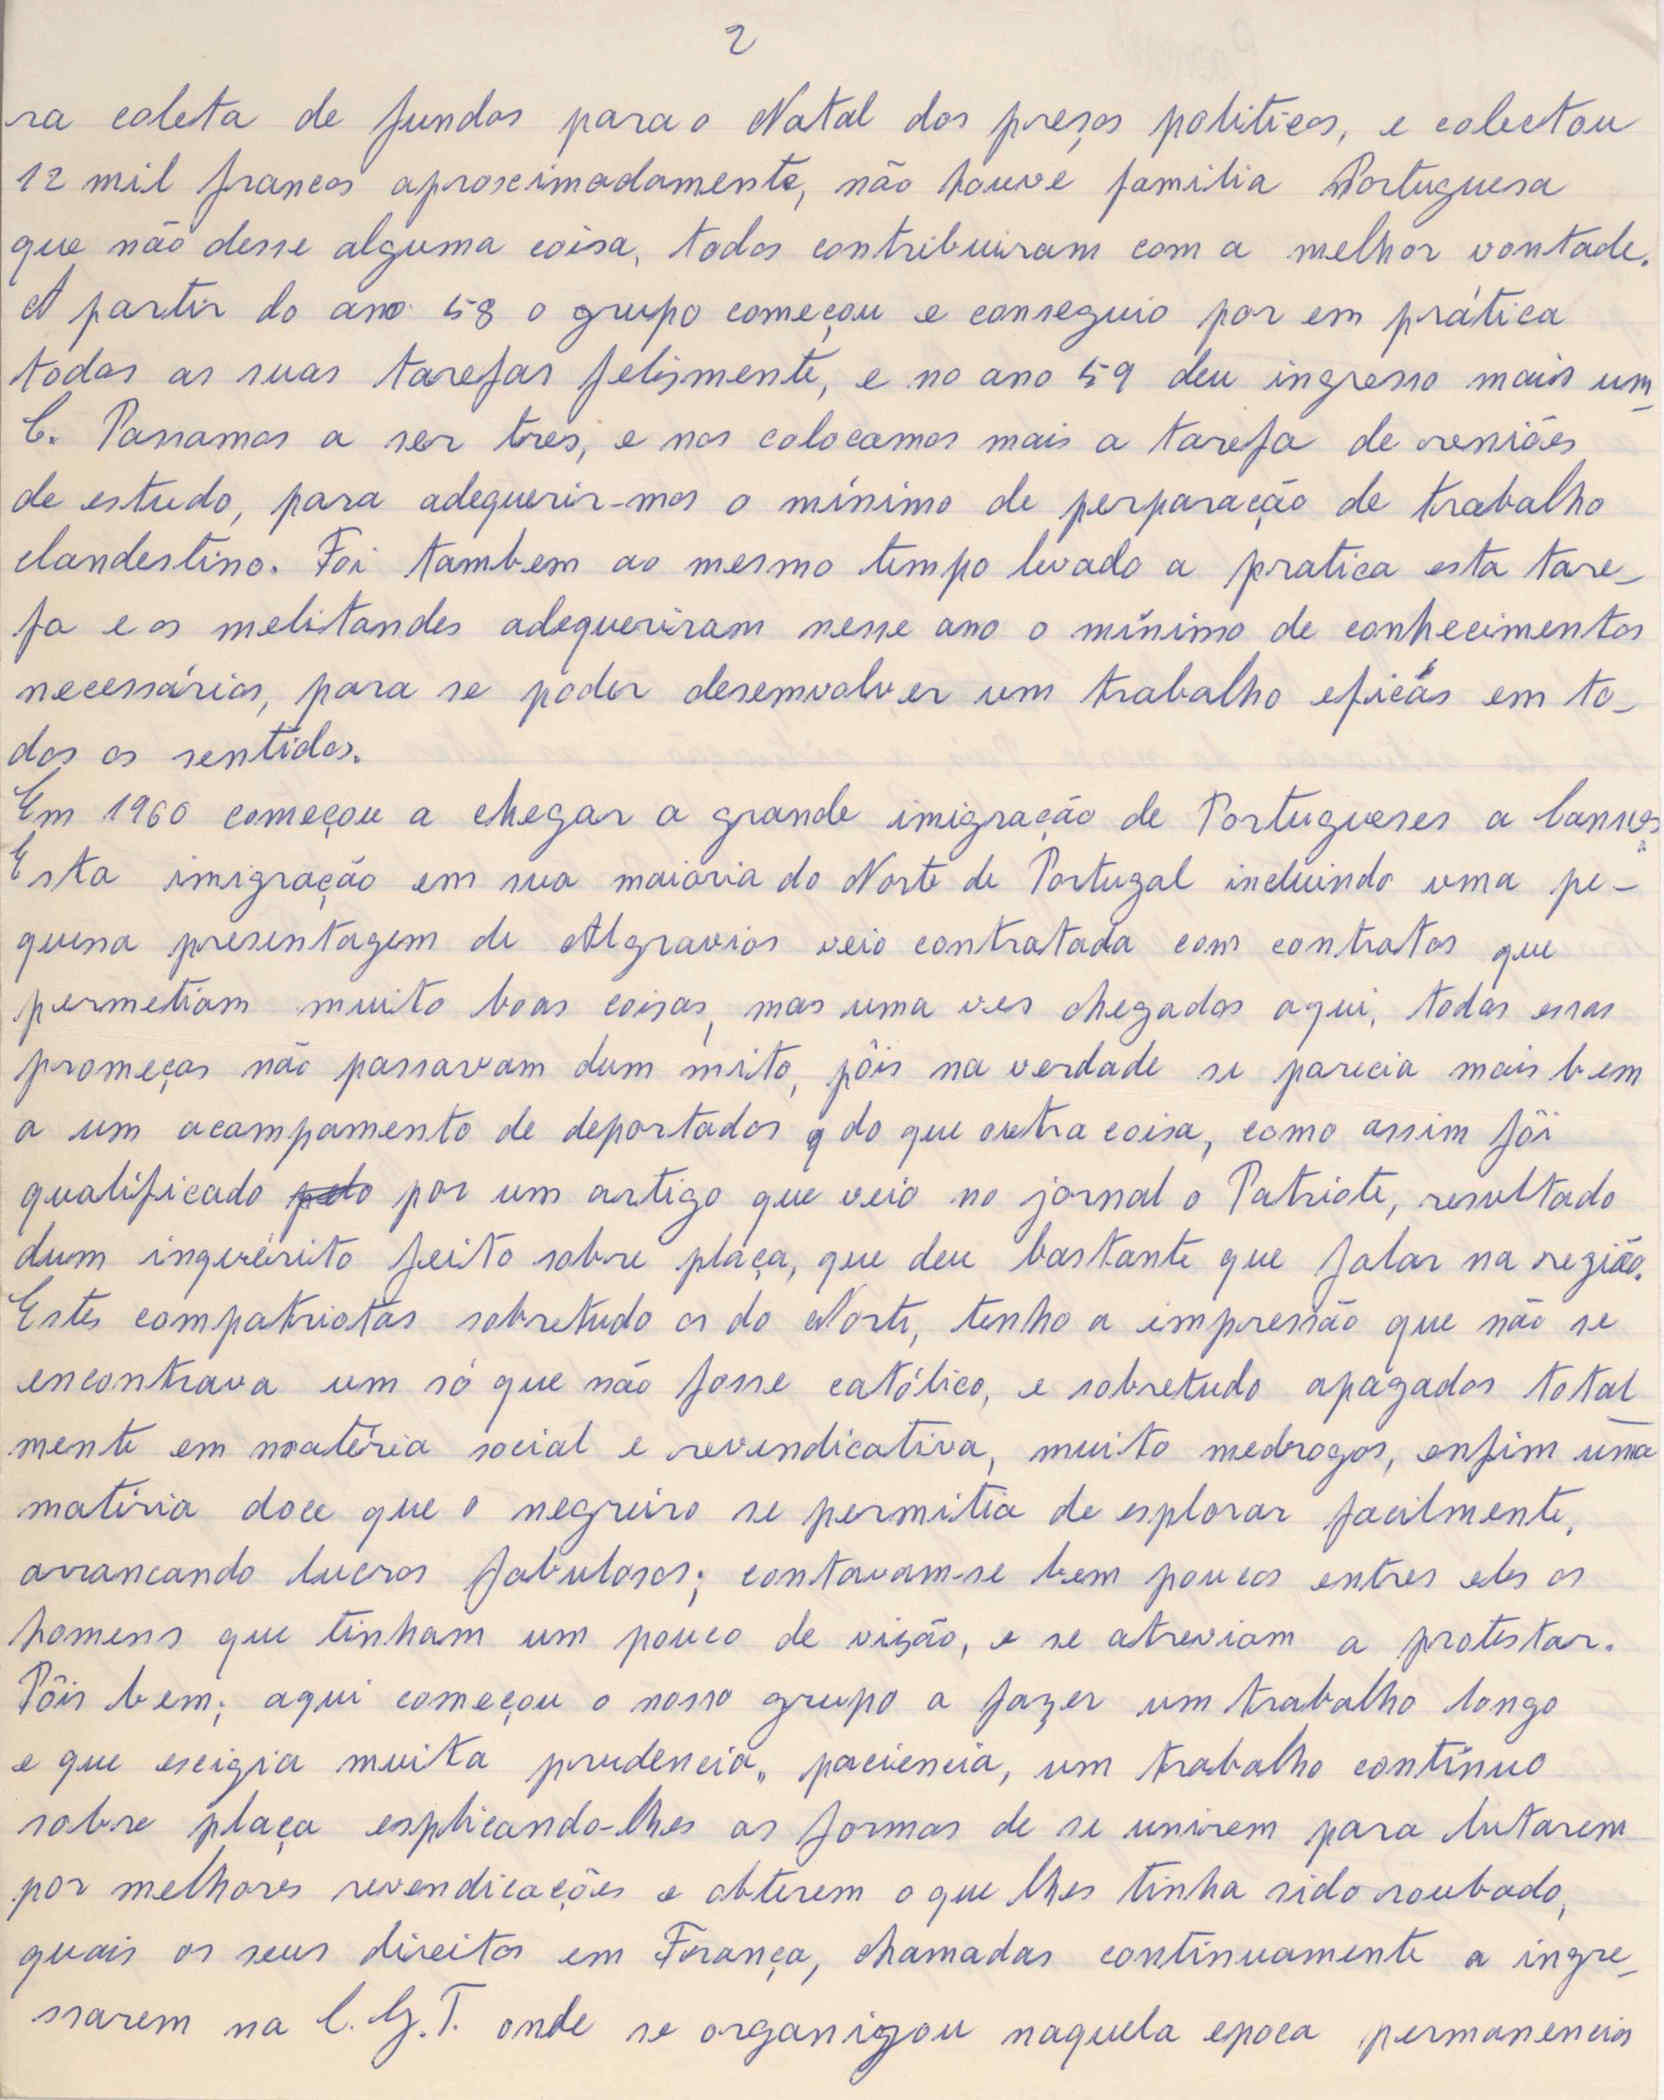 2
ra coleta de fundos para o Natal dos preços politicos, e colectou
12 mil francos aproscimadamente, não houve familia Portuguesa
que não desse alguma coisa, todos contribuiram com a melhor vontade.
A partir do ano 58 o grupo começou e conseguio por em prática
todas as suas tarefas felizmente, e no ano 59 deu ingresso mais um
C. Passamos a ser tres, e nos colocamos mais a tarefa de reniões
de estudo, para adequerir-mos o mínimo de perparação de trabalho
clandestino. Foi tambem ao mesmo tempo levado a pratica esta tare-
fa e os melitandes adequeriram nesse ano o mínimo de conhecimentos
necessários, para se poder desemvolver um trabalho eficás em to-
dos os sentidos.
Em 1960 começou a chegar a grande imigração de Portugueses a Cannes
Esta imigração em sua maioria do Norte de Portugal incluindo uma pe-
quena presentagem de Algravios veio contratada com contratos que
permetiam muito boas coisas, mas uma ves chegados aqui, todas essas
promeças não passavam dum mito, pôis na verdade se parecia mais bem
a um acampamento de deportados q do que outra coisa, como assim fôi
qualificado pelo por um artigo que veio no jornal o Patriote, resultado
dum inquérito feito sobre plaça, que deu bastante que falar na região.
Estes compatriotas sobretudo os do Norte, tenho a impressão que não se
encontrava um só que não fosse católico, e sobretudo apagados total
mente em matéria social e revendicativa, muito medrozos, enfim uma
matéria doce que o negreiro se permitia de esplorar facilmente,
arrancando lucros fabulosos; contavam-se bem poucos entres eles os
homens que tinham um pouco de vizão, e se atreviam a protestar.
Pôis bem; aqui começou o nosso grupo a fazer um trabalho longo
e que escigia muita prudencia, paciencia, um trabalho contínuo
sobre plaça esplicando-lhes as formas de se unirem para lutarem
por melhores revendicações e obterem o que lhes tinha sido roubado,
quais os seus direitos em França, chamadas continuamente a ingre-
ssarem na C.G.T. onde se organizou naquela epoca permanencias